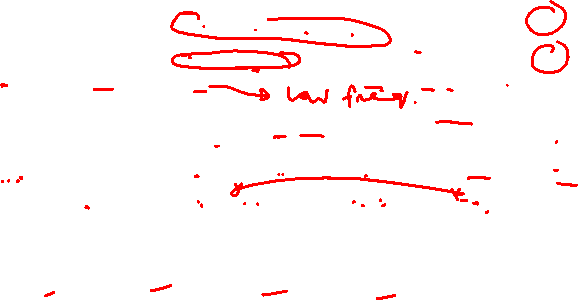 low freq.